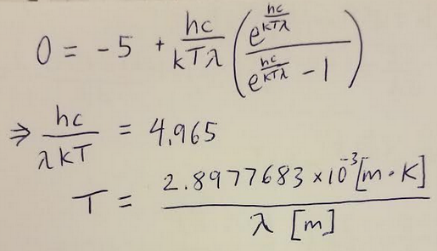 0 = -5 + hc/kTλ (e^(hc/kTλ) / (e^(hc/kTλ) - 1))
⇒ hc/λkT = 4.965
T = 2.8977683 × 10^-3 [m·K] / λ [m]